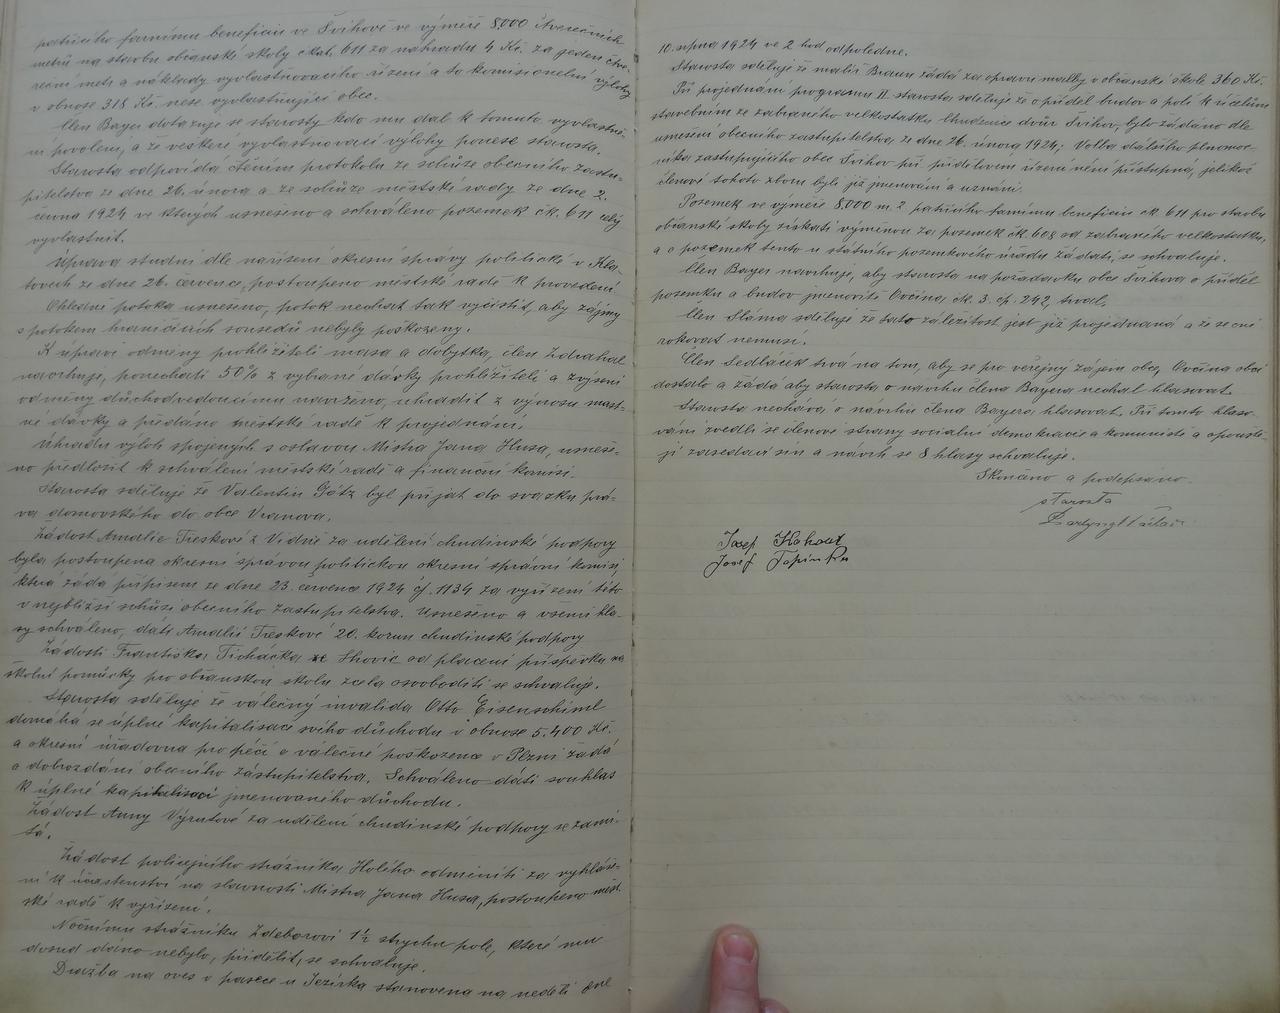 patřícího farnímu beneficiu ve Švihově ve výměře 8.000 čtverečních
metrů na stavbu občanské školy čkat. 611 za náhradu 4 Kč. za jeden čtve-
reční metr a náklady vyvlastňovacího řízení a to komisionelní výlohy
v obnose 318 Kč. nese vyvlastňující obec.
Člen Bayer dotazuje se starosty kdo mu dal k tomuto vyvlastně-
ní povolení, a že veškeré vyvlastňovací výlohy ponese starosta.
Starosta odpovídá čtením protokolu ze schůze obecního zastu-
pitelstva ze dne 26. února a ze schůze městské rady ze dne 2.
června 1924 ve kterých usnešeno a schváleno pozemek čk. 611 celý
vyvlastnit.
Úprava studní dle nařízení okresní správy politické v Kla-
tovech ze dne 26. července, postoupeno městské radě k provedení.
Ohledně potoka usnešeno, potok nechat tak vyčistit, aby zájmy
s potokem hraničících sousedů nebyly poškozeny.
K úpravě odměny prohlížiteli masa a dobytka, člen Zdrahal
navrhuje, ponechati 50% z vybrané dávky prohlížiteli a zvýšení
odměny důchodvedoucímu navrženo, uhradit z výnosu mast-
né dávky a předáno městské radě k projednání.
Úhradu výloh spojených s oslavou Mistra Jana Husa, usneše-
no předložit k schválení městské radě a finanční komisi.
Starosta sděluje že Valentin Götz byl přijat do svazku prá-
va domovského do obce Vranova.
Žádost Amalie Treskové z Vídně za udělení chudinské podpory
byla postoupena okresní správou politickou okresní správní komisi,
která žádá přípisem ze dne 23. července 1924 čj. 1134 za vyřízení této
v nejbližší schůzi obecního zastupitelstva. Usnešeno a všemi hla-
sy schváleno, dáti Amalii Treskové 20. korun chudinské podpory
Žádosti Františka Ticháčka ze Lhovic od placení příspěvku na
školní pomůcky pro občanskou školu zcela osvoboditi se schvaluje.
Starosta sděluje že válečný invalida Otto Eisenschiml
domáhá se úplné kapitalisaci svého důchodu v obnose 5.400 Kč.
a okresní úřadovna pro péči o válečné poškozence v Plzni žádá
o dobrozdání obecního zastupitelstva. Schváleno dáti souhlas
k úplné kapitalisaci jmenovaného důchodu.
Žádost Anny Výrutové za udělení chudinské podpory se zamí-
tá.
Žádost policejního strážníka Holého odměniti za vyhláše-
ní k účastenství na slavnosti Mistra Jana Husa, postoupeno měst-
ské radě k vyřízení.
Nočnímu strážníku Zdeborovi 1½ strychu pole, které mu
dosud dáno nebylo, přidělit, se schvaluje.
Dražba na oves v pasece u Jezírka stanovena na neděli dne
10. srpna 1924 ve 2 hod. odpoledne.
Starosta sděluje že malíř Braun žádá za opravu malby v občanské škole 360 Kč.
Při projednání programu II. starosta sděluje že o příděl budov a polí k účelům
stavebním ze zabraného velkostatku Chudenice dvůr Švihov, bylo žádáno dle
usnesení obecního zastupitelstva, ze dne 26. února 1924; Volba dalšího plnomoc-
níka zastupujícího obec Švihov při přídělovém řízení není přístupná, jelikož
členové tohoto sboru byli již jmenováni a uznáni.
Pozemek ve výměře 8.000 m.2. patřícího farnímu beneficiu čk. 611 pro stavbu
občanské školy získati výměnou za pozemek čk. 608 od zabraného velkostatku,
a o pozemek tento u státního pozemkového úřadu žádati, se schvaluje.
Člen Bayer navrhuje, aby starosta na požadavku obce Švihova o příděl
pozemku a budov jmenovitě Ovčína, čk. 3. čp. 242, trval.
Člen Sláma sděluje že tato záležitost jest již projednaná a že se ní
rokovat nemusí.
Člen Sedláček trvá na tom, aby se pro veřejný zájem obce, Ovčína obci
dostalo a žádá aby starosta o návrhu člena Bayera nechal hlasovat.
Starosta nechává o návrhu člena Bayera hlasovat. Při tomto hlaso-
vání zvedli se členové strany sociální demokracie a komunisté a opouště-
jí zasedací síň a návrh se 8 hlasy schvaluje.
Skončeno a podepsáno.
starosta
Josef Kohout
Josef